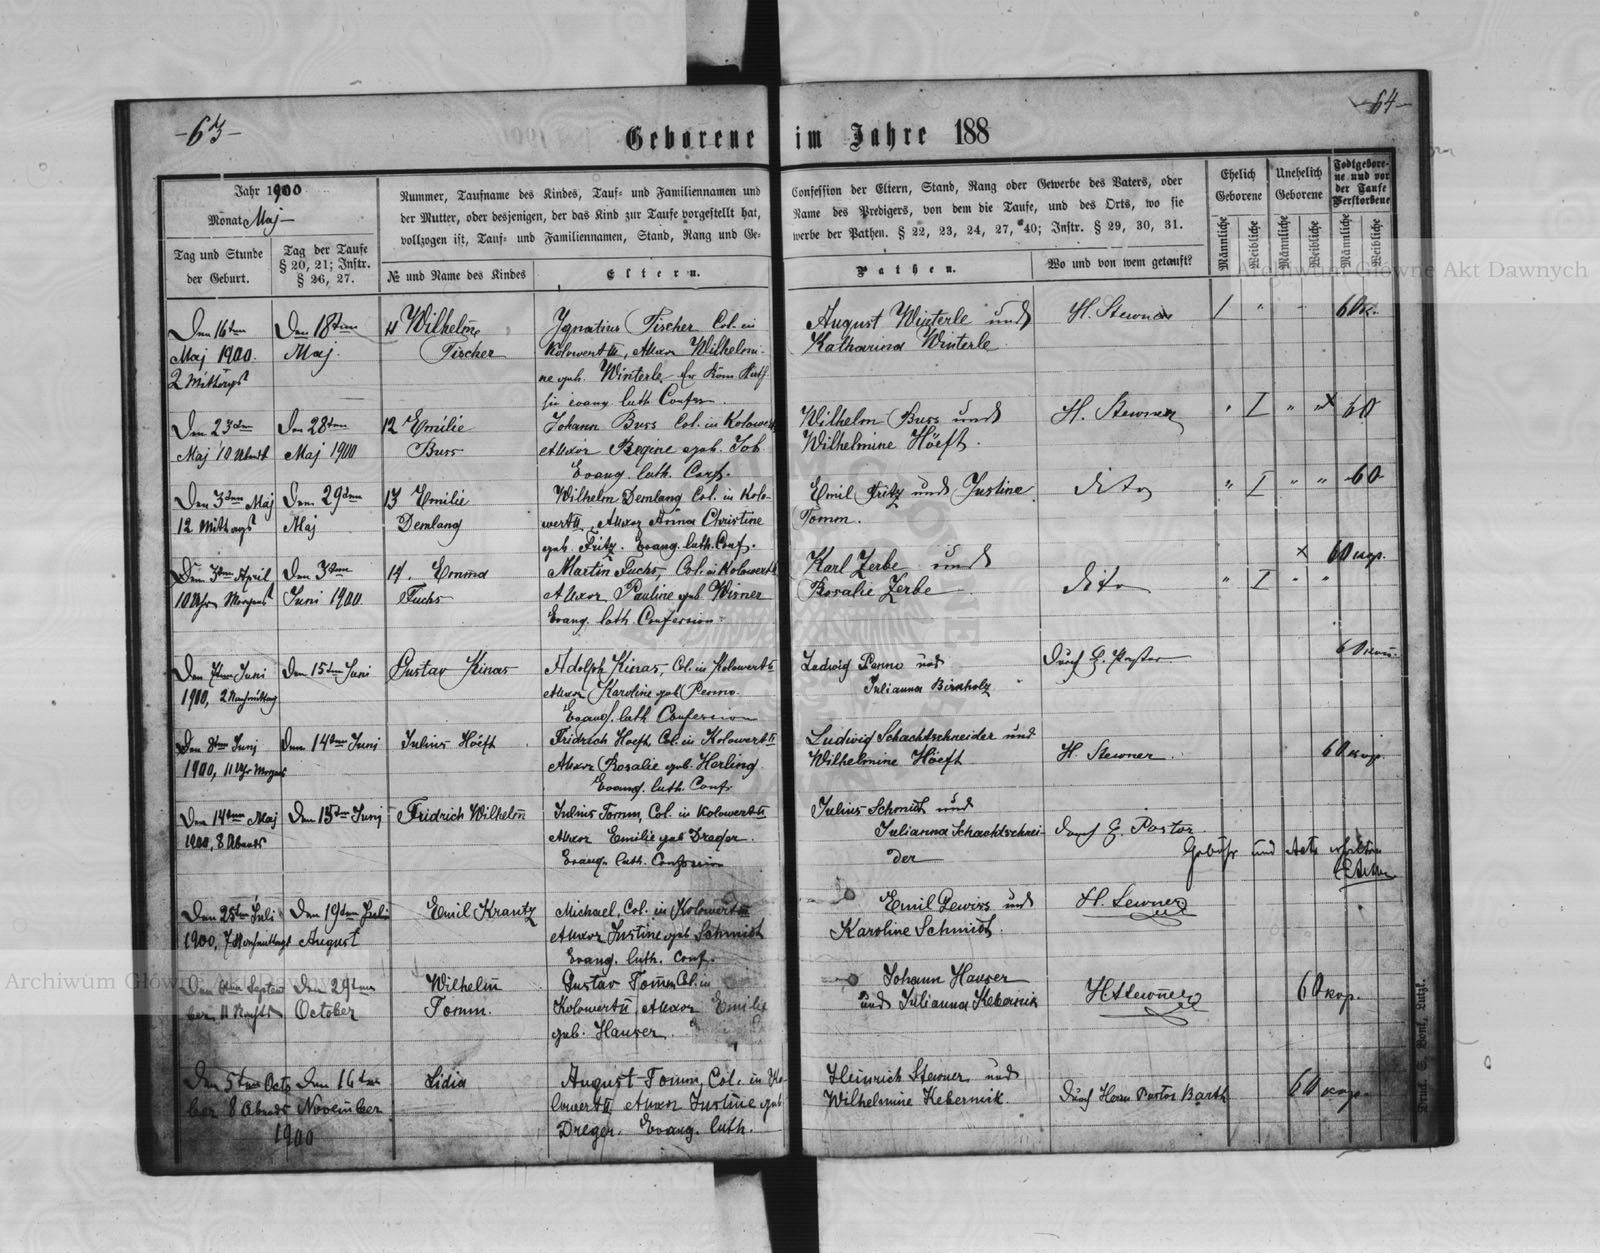 -63-
-64-
Geborene im Jahre 188
Jahr 1900
Monat Maj
Tag und Stunde
der Geburt.
Tag der Taufe
§ 20, 21; Instr.
§ 26, 27.
Nummer, Taufname des Kindes, Tauf- und Familiennamen und
der Mutter, oder desjenigen, der das Kind zur Taufe vorgestellt hat,
vollzogen ist, Tauf- und Familiennamen, Stand, Rang und Ge-
№ und Name des Kindes
Eltern.
Confession der Eltern, Stand, Rang oder Gewerbe des Vaters, oder
Name des Predigers, von dem die Taufe, und des Orts, wo sie
werbe der Pathen. § 22, 23, 24, 27, 40; Instr. § 29, 30, 31.
Pathen.
Wo und von wem getauft?
Ehelich
Geborene
Unehelich
Geborene
Todtgebore-
ne und vor
der Taufe
Verstorbene
Männliche
Weibliche
Männliche
Weibliche
Männliche
Weibliche
Den 16ten
Maj 1900.
2 Mittags
Den 18ten
Maj.
11 Wilhelm
Fischer
Ygnatius Fischer Col. in
Kolowert II, Uxor Wilhelmi-
ne geb. Winterle Er Röm. Kath
sie evang. luth Confes.
August Winterle und
Katharina Winterle
H. Stewner
1 " - 60 k.
Den 23ten
Maj 10 Abends
Den 28ten
Maj 1900
12 Emilie
Buss
Johann Buss Col. in Kolowert
Uxor Regine geb. Job
Evang. luth. Conf.
Wilhelm Buss und
Wilhelmine Höeft.
H. Stewner
" I " " x 60
Den 3ten Maj
12 Mittags
Den 29ten
Maj
13 Emilie
Demlang
Wilhelm Demlang Col. in Kolo-
wert II, Uxor Anna Christine
geb. Fritz. Evang. luth. Conf.
Emil Fritz und Justine
Tomm.
dito
" I " " 60
Den 3ten April
10 Uhr Morgens
Den 3ten
Juni 1900
14. Emma
Fuchs
Martin Fuchs, Col. in Kolowert II
Uxor Pauline geb. Wisner
Evang. luth. Confession
Karl Zerbe und
Rosalie Zerbe
dito
" I " " x 60 kop.
Den Juni
1900, 2 Nachmittag
Den 15ten Juni
Gustav Kinas
Adolph Kinas, Col. in Kolowert II
Uxor Karoline geb Penno.
Evang. luth Confession
Ludwig Penno und
Julianna Birnholz
durch H. Pastor
60 kop.
Den 8ten Junj
1900, 11 Uhr Morgens
Den 14ten Junj
Julius Höeft
Fridrich Hoeft, Col. in Kolowert II
Uxor Rosalie geb. Herling
Evang. luth. Conf.
Ludwig Schachtschneider und
Wilhelmine Höeft
H. Stewner
60 kop.
Den 14ten Maj
1900, 8 Abends
Den 15ten Junj
Fridrich Wilhelm
Julius Tomm, Col. in Kolowert II
Uxor Emilie geb Dreger
Evang. luth. Confession
Julius Schmidt und
Julianna Schachtschnei-
der
durch H. Pastor
Gebühr und Akte erhalten
Den 25ten Juli
1900, 7 Nachmittags
Den 19ten Julie
August
Emil Krantz
Michael, Col. in Kolowert II
Uxor Justine geb Schmidt
Evang. luth. Conf.
Emil Gewiss und
Karoline Schmidt.
H. Sewner
Den Septem
ber, 11 Nachts
Den 29ten
October
Wilhelm
Tomm.
Gustav Tomm Col. in
Kolowert II Uxor Emilie
geb. Hauser.
Johann Hauser
und Julianna Kebernik
H Stewner
60 kop.
Den 5ten Octo
ber 8 Abends
Den 16ten
November
1900
Lidia
August Tomm, Col. in Ko-
lowert II Uxor Justine geb
Dreger. Evang. luth.
Heinrich Stewner und
Wilhelmine Kebernik.
durch Herrn Pastor Barth
60 kop.
Druck. S. Bonk, Lutzk.
Archiwum Główne Akt Dawnych
Archiwum Główne Akt Dawnych